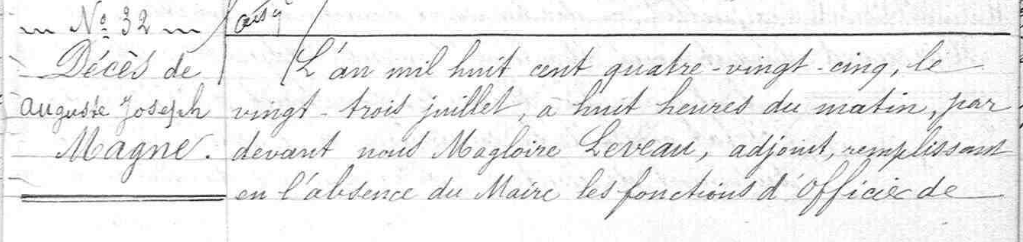 N° 32
Décès de
Auguste Joseph
Magne.
L'an mil huit cent quatre-vingt-cinq, le
vingt-trois juillet, à huit heures du matin, par
devant nous Magloire Leveau, adjoint, remplissant
en l'absence du Maire les fonctions d'Officier de